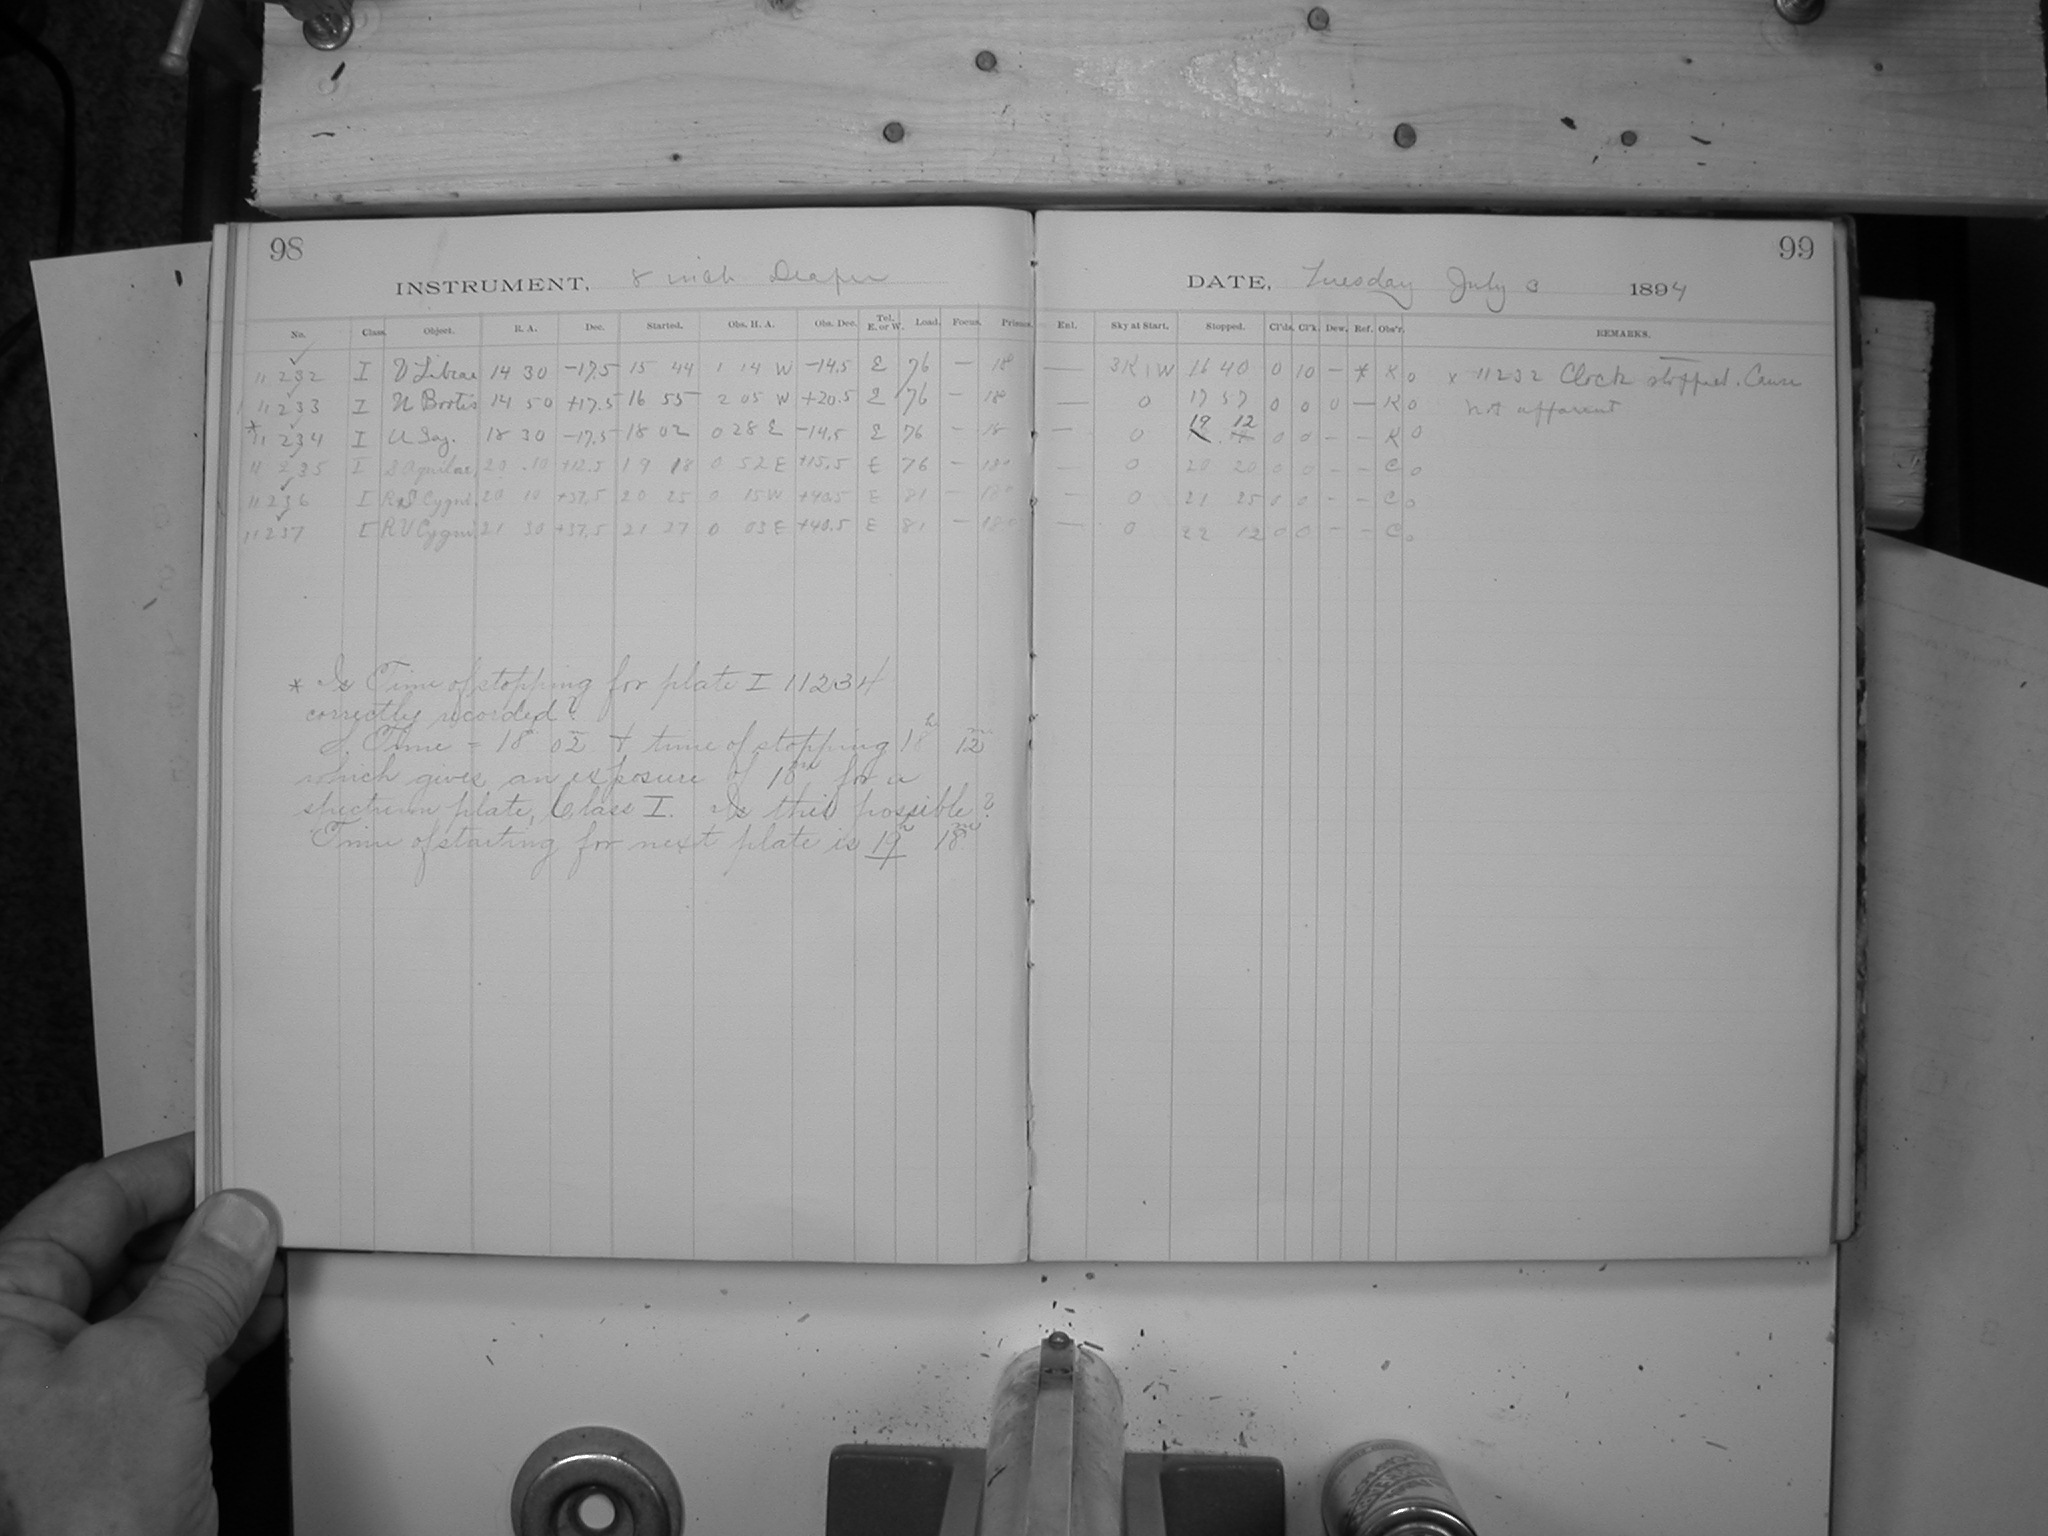 98
99
INSTRUMENT, 8 inch Draper
DATE, Tuesday July 3 1894
No. Class. Object. R. A. Dec. Started. Obs. H. A. Obs. Dec. Tel. E. or W. Load. Focus. Prisms. Enl. Sky at Start. Stopped. Cl'ds. Cl'k. Dew. Ref. Obs'r. REMARKS.
11232 I Librae 14 30 -17.5 15 44 1 14 W -14.5 E 76 — 18° — 3K1W 16 40 0 10 - * K 0 x 11232 Clock stopped. Cause
11233 I U Bootis 14 50 +17.5 16 55 2 05 W +20.5 E 76 — 18° — 0 17 57 0 0 0 — K 0 not apparent
* 11234 I U Sag. 18 30 -17.5 18 02 0 28 E -14.5 E 76 — 18 — 0 19 12 0 0 - - K 0
11235 I S Aquilae 20 10 +12.5 19 18 0 52 E +15.5 E 76 — 18° — 0 20 20 0 0 - - C 0
11236 I RS Cygni 20 10 +37.5 20 25 0 15 W +40.5 E 81 — 18° — 0 21 25 0 0 - - C 0
11237 I RV Cygni 21 30 +37.5 21 27 0 03 E +40.5 E 81 — 18° — 0 22 12 0 0 - - C 0
* Is Time of stopping for plate I 11234
correctly recorded?
S. Time = 18h 02m & time of stopping 18h 12m
which gives an exposure of 10m for a
spectrum plate, Class I. Is this possible?
Time of starting for next plate is 19h 18m